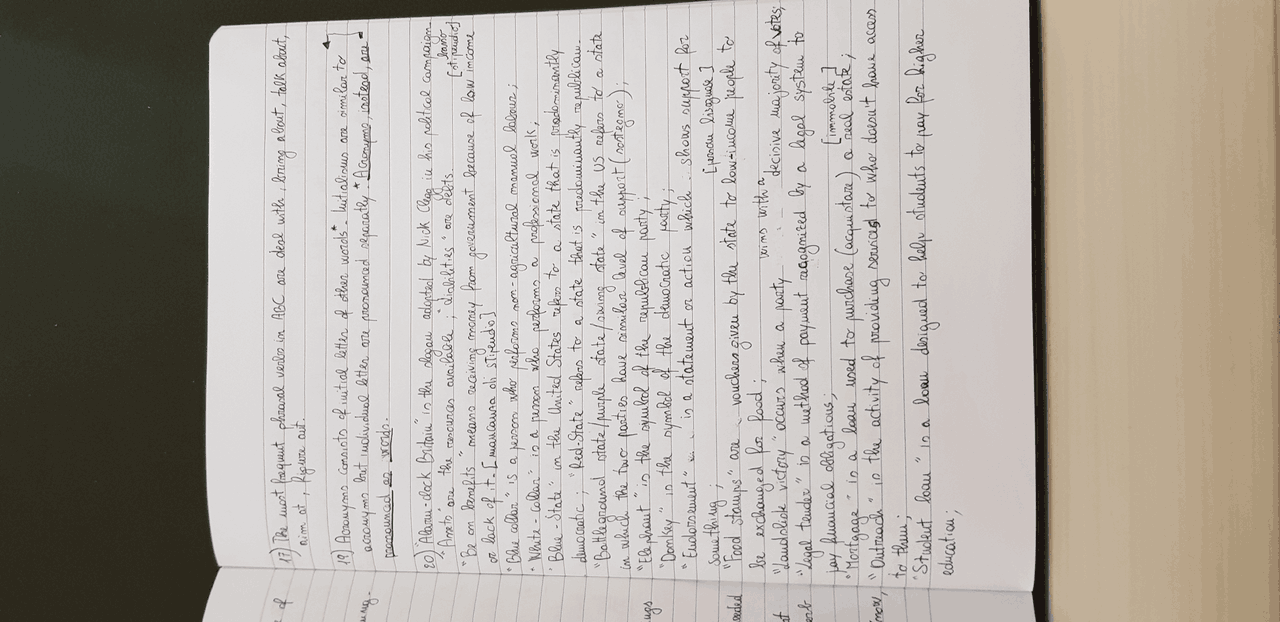 17) The most frequent phrasal verbs in ABC are deal with, bring about, talk about,
aim at, figure out.
19) Acronyms consists of initial letter of other words.* Initialisms are similar to
acronyms but individual letter are pronounced separately.* Acronyms, instead, are
pronounced as words.
20) "Alarm-clock Britain" is the slogan adopted by Nick Clegg in his political campaign.
"Assets" are the resources available; "liabilities" are debts. [stipendio]
basso
"Be on benefits" means receiving money from government because of low income
or lack of it. [mancanza di stipendio]
"Blue collar" is a person who performs non-agricultural manual labour;
"White-collar" is a person who performs a professional work;
"Blue-State" in the United States refers to a state that is predominantly
democratic; "Red-State" refers to a state that is predominantly republican.
"Battleground state/purple state/swing state" in the US refers to a state
in which the two parties have similar level of support (sostegno);
"Elephant" is the symbol of the republican party;
"Donkey" is the symbol of the democratic party;
"Endorsement" is a statement or action which shows support for
something;
"Food stamps" are vouchers given by the state to low-income people to
be exchanged for food;
wins with a
"Landslide victory" occurs when a party decisive majority of votes;
"Legal tender" is a method of payment recognized by a legal system to
pay financial obligations; [immobile]
"Mortgage" is a loan used to purchase (acquistare) a real estate;
"Outreach" is the activity of providing services to who doesn't have access
to them;
"Student loan" is a loan designed to help students to pay for higher
education;
of
ups
now,